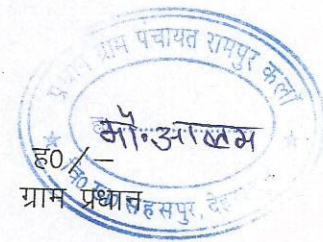 प्रधान ग्राम पंचायत रामपुर कलां
मौ. आलम
ह0/-
ग्राम प्रधान
सहसपुर, दे